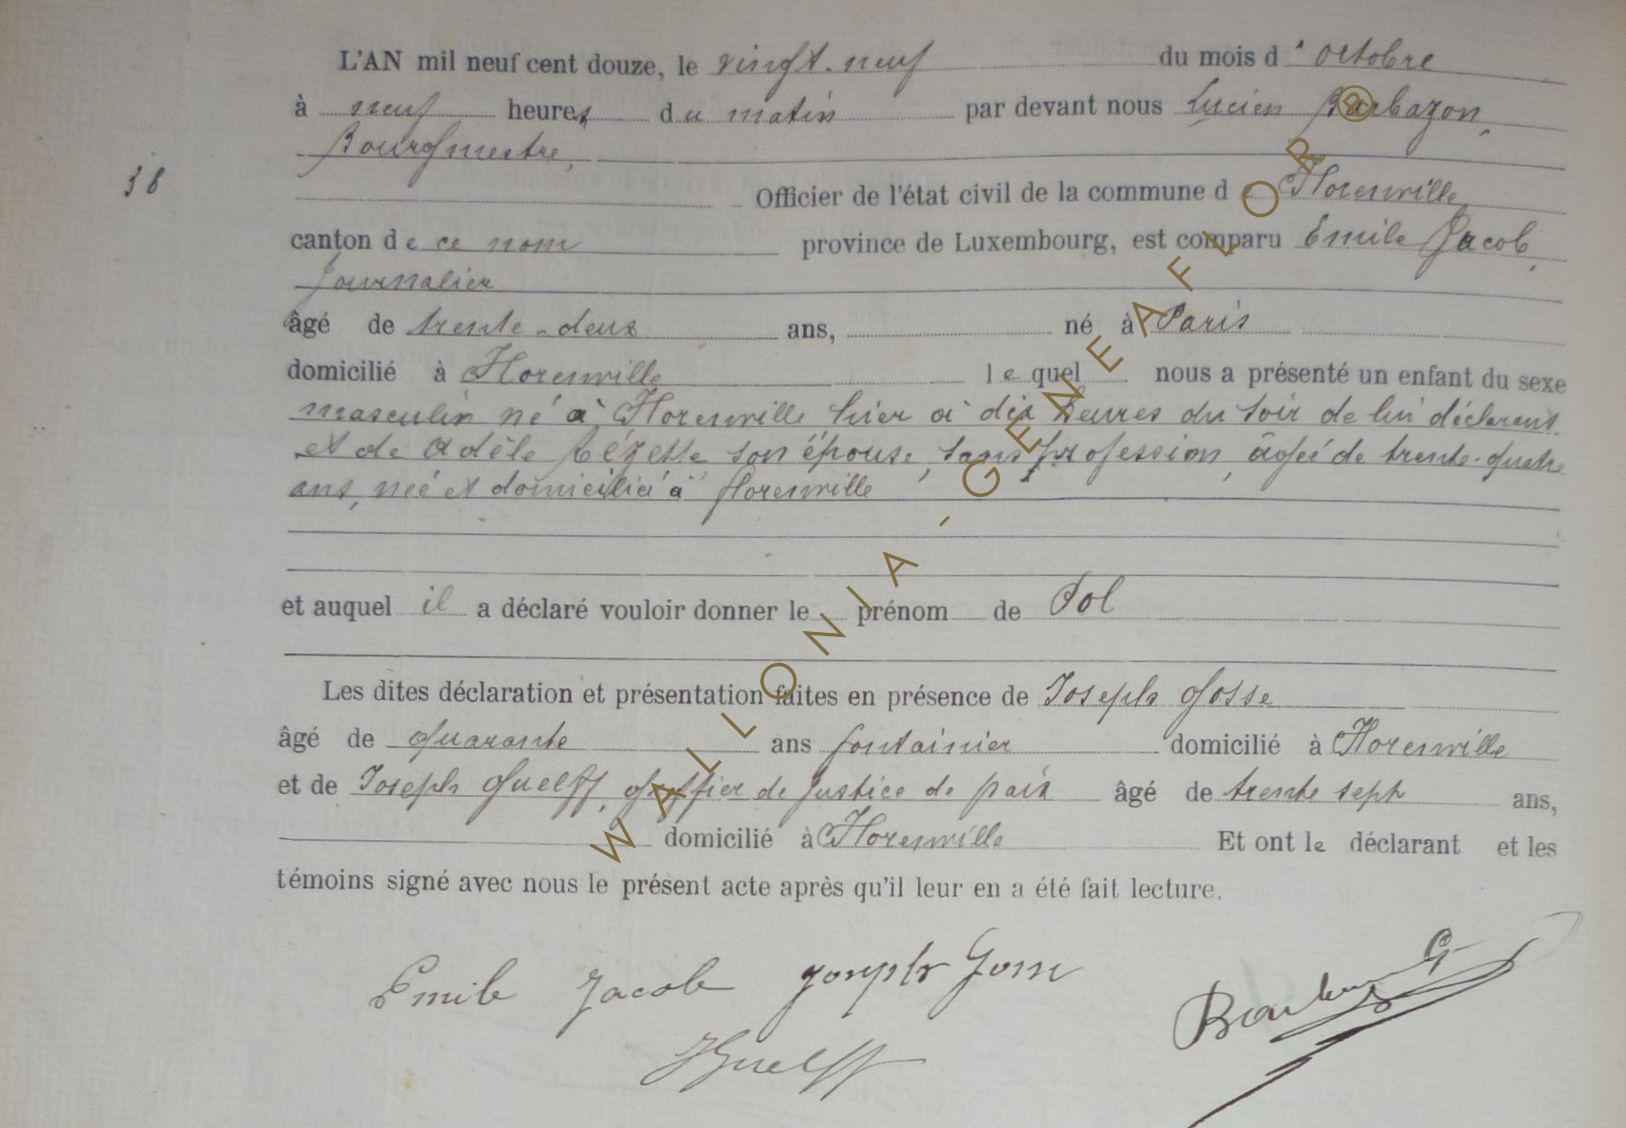 L'AN mil neuf cent douze, le vingt-neuf du mois d'octobre
à neuf heures du matin par devant nous Lucien Barbazon,
Bourgmestre,
38
Officier de l'état civil de la commune de Florenville
canton de ce nom province de Luxembourg, est comparu Emile Jacob,
journalier
âgé de trente-deux ans, né à Paris
domicilié à Florenville lequel nous a présenté un enfant du sexe
masculin né à Florenville hier à dix heures du soir de lui déclarant
et de Adèle son épouse, sans profession, âgée de trente-quatre
ans, née et domiciliée à Florenville
et auquel il a déclaré vouloir donner le prénom de Pol
Les dites déclaration et présentation faites en présence de Joseph Gosse
âgé de quarante ans fontainier domicilié à Florenville
et de Joseph Guelff, greffier de justice de paix âgé de trente sept ans,
domicilié à Florenville Et ont le déclarant et les
témoins signé avec nous le présent acte après qu'il leur en a été fait lecture.
Emile Jacob Joseph Gosse
JGuelff
WALLONIA-GENEAFLOR®